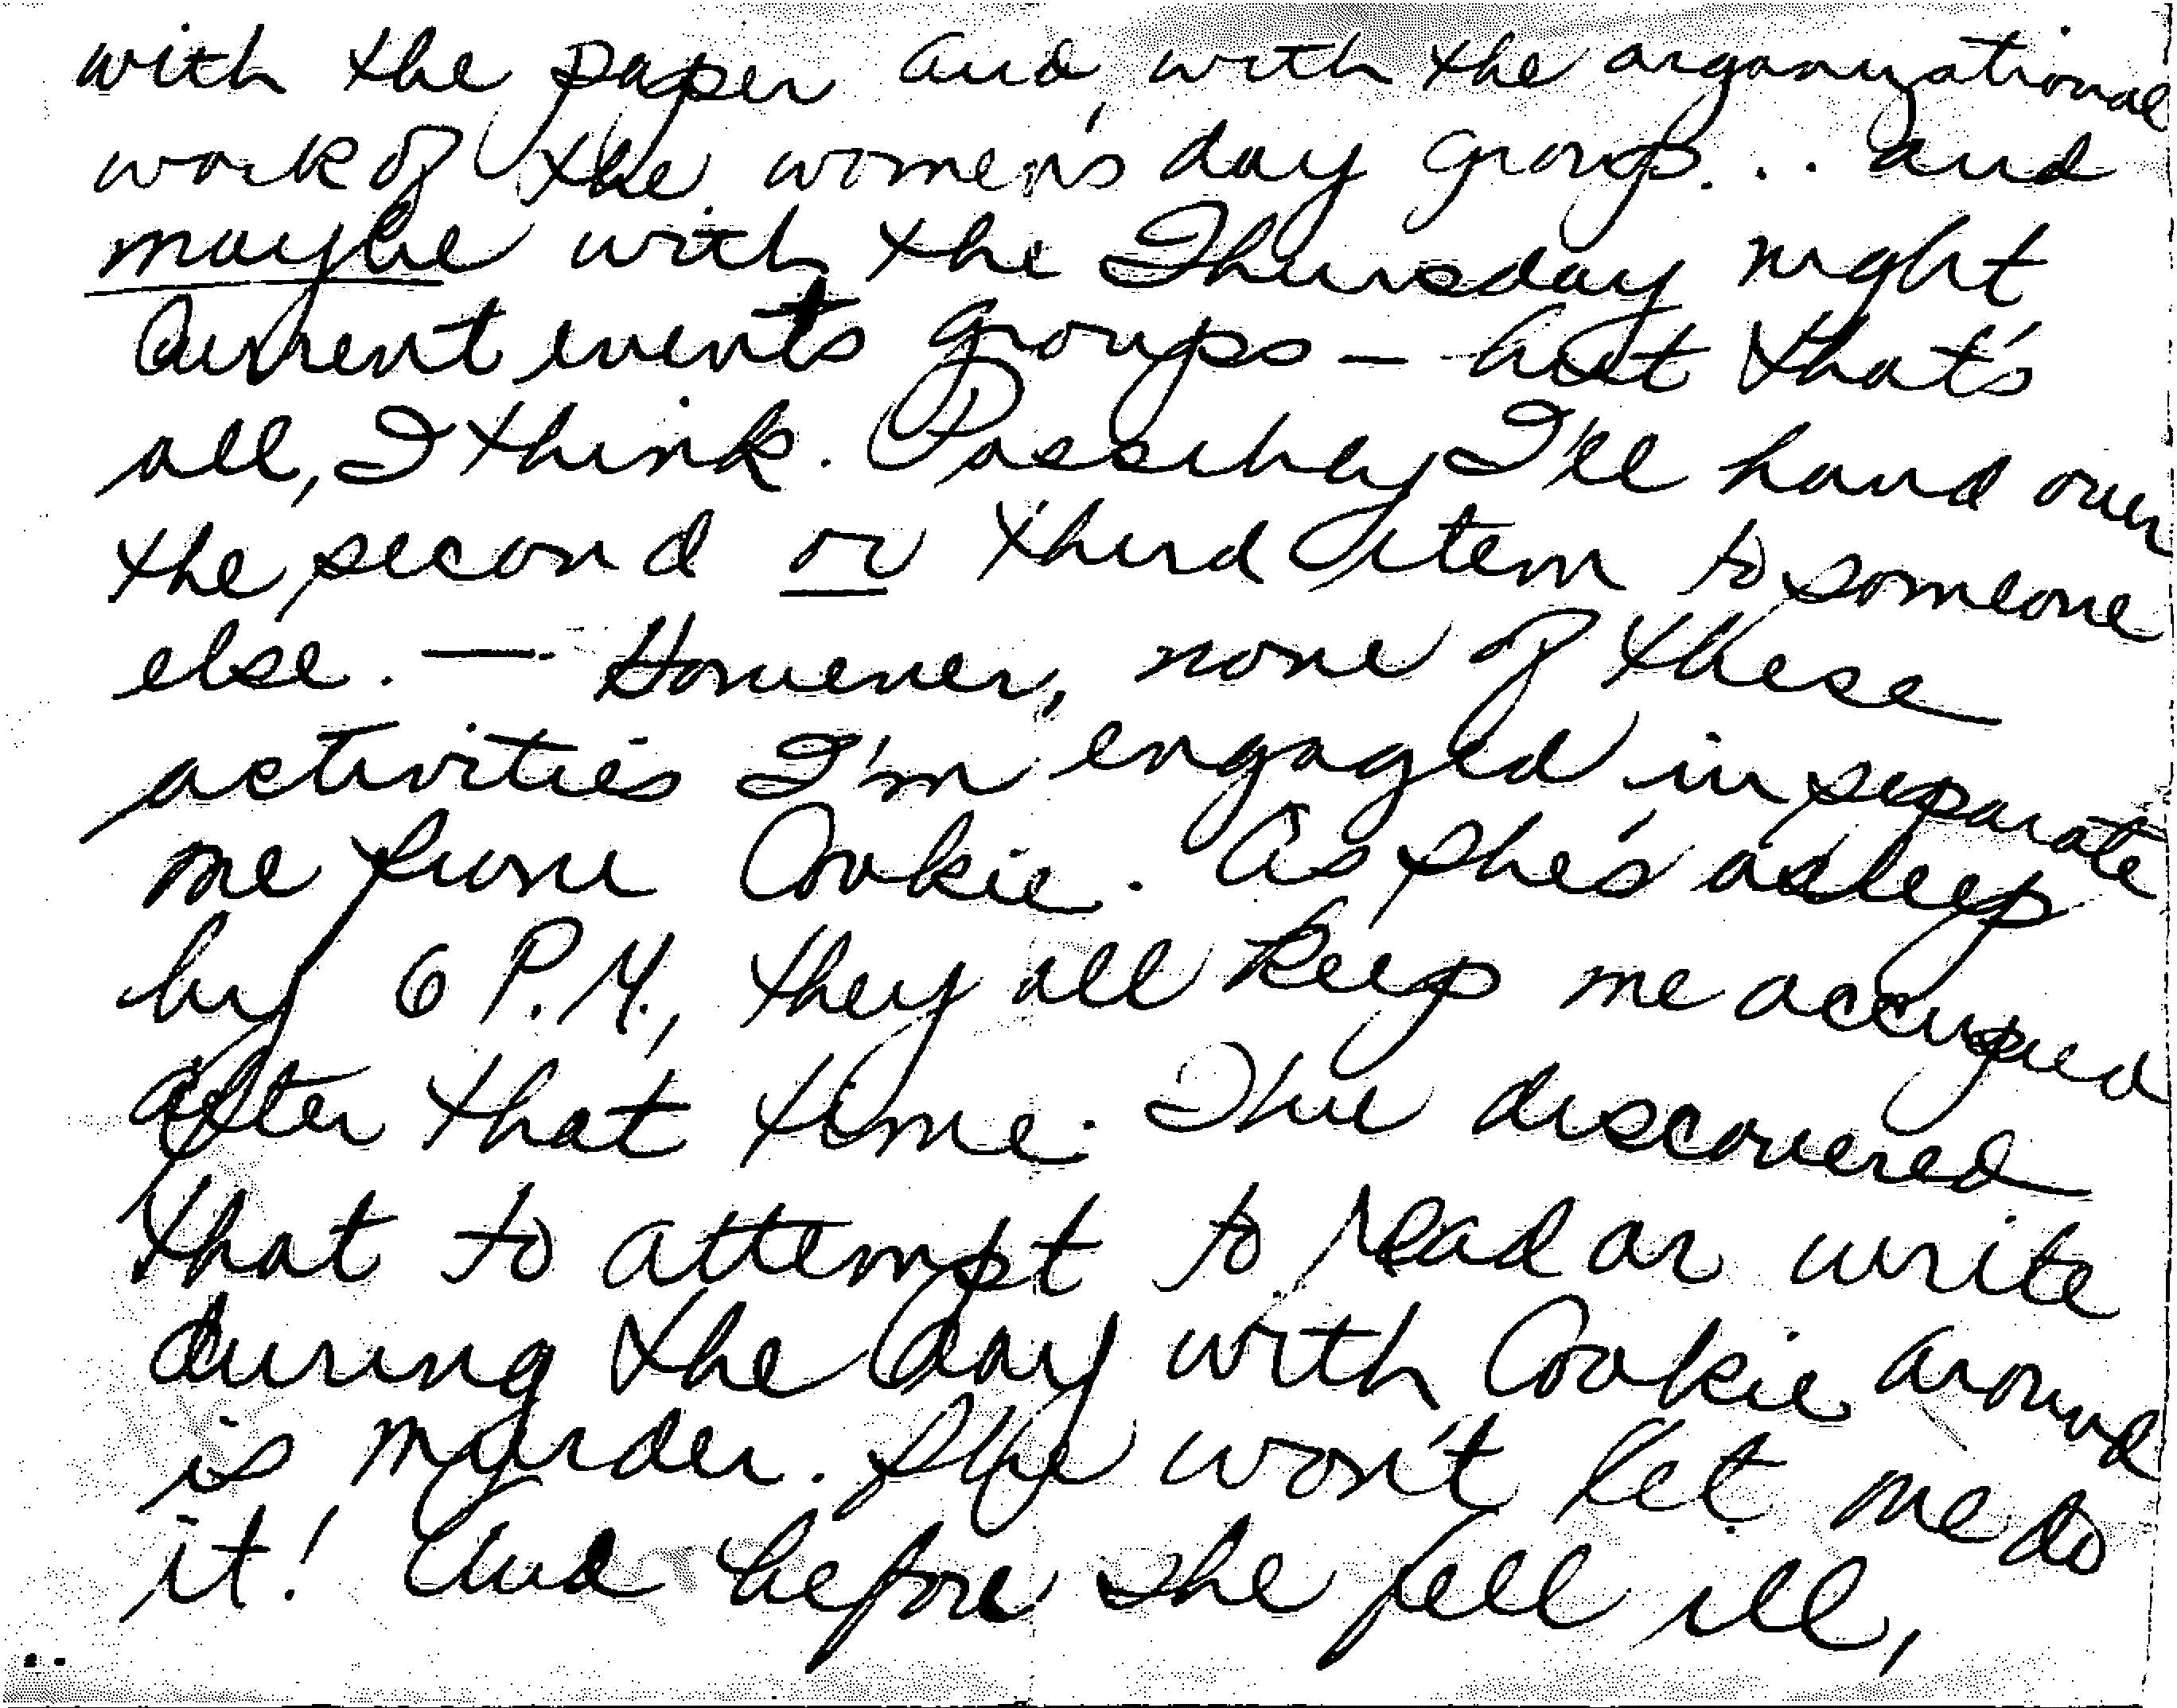 with the paper and, with the organizational
work of the women's day group... and
maybe with the Thursday night
Current events groups — but that's
all, I think. Possibly I'll hand over
the second or third item to someone
else. — However, none of these
activities I'm engaged in separate
me from Cookie. As she's asleep
by 6 P.M., they all keep me occupied
after that time. I've discovered
that to attempt to read or write
during the day with Cookie around
is murder. She won't let me do
it! And before she fell ill,